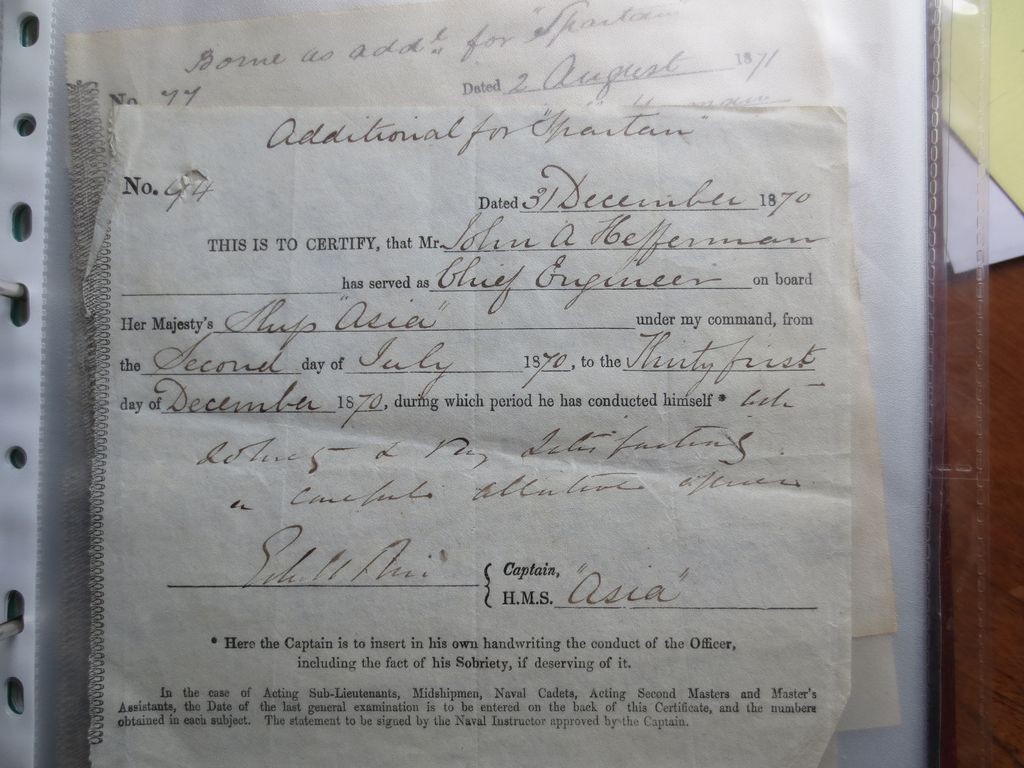 Borne as addl. for "Spartan"
No. 77 Dated 2 August 1871
Additional for "Spartan"
No. 94
Dated 31 December 1870
THIS IS TO CERTIFY, that Mr. John A Heffernan
has served as Chief Engineer on board
Her Majesty's Ship "Asia" under my command, from
the Second day of July 1870, to the Thirty first
day of December 1870, during which period he has conducted himself * with
sobriety & very satisfactorily
a careful attentive officer
Captain,
H.M.S. "Asia"
* Here the Captain is to insert in his own handwriting the conduct of the Officer,
including the fact of his Sobriety, if deserving of it.
In the case of Acting Sub-Lieutenants, Midshipmen, Naval Cadets, Acting Second Masters and Master's
Assistants, the Date of the last general examination is to be entered on the back of this Certificate, and the numbers
obtained in each subject. The statement to be signed by the Naval Instructor approved by the Captain.